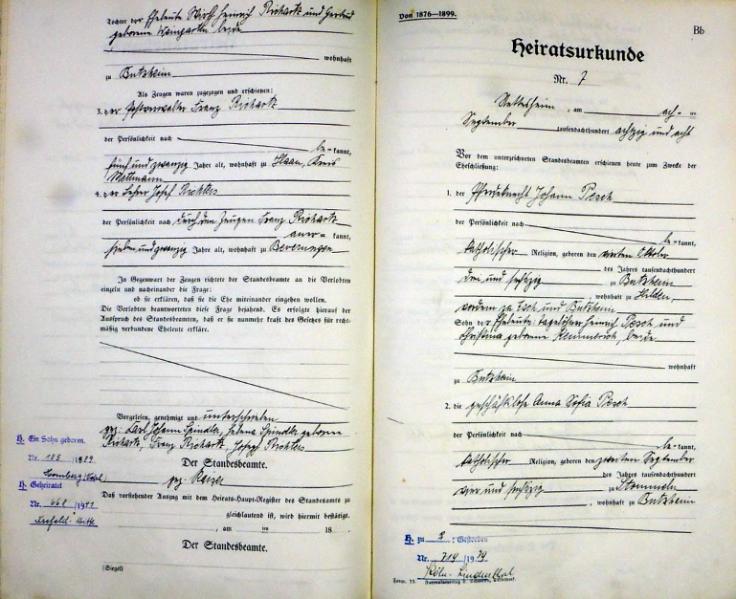 Tochter der Eheleute Wirth Heinrich Richartz und Gertrud
geborene Weingarten beide
wohnhaft
zu Butzheim
Als Zeugen waren zugezogen und erschienen:
3. der Postverwalter Franz Richartz
der Persönlichkeit nach
be- kannt,
fünf und zwanzig Jahre alt, wohnhaft zu Haan, Kreis
Mettmann
4. der Lehrer Josef Richters
der Persönlichkeit nach durch den Zeugen Franz Richartz
aner- kannt,
sieben und zwanzig Jahre alt, wohnhaft zu Beverungen
In Gegenwart der Zeugen richtete der Standesbeamte an die Verlobten
einzeln und nacheinander die Frage:
ob sie erklären, daß sie die Ehe miteinander eingehen wollen.
Die Verlobten beantworteten diese Frage bejahend. Es erfolgte hierauf der
Ausspruch des Standesbeamten, daß er sie nunmehr kraft des Gesetzes für recht-
mäßig verbundene Eheleute erkläre.
Vorgelesen, genehmigt und unterschrieben
gez: Carl Johann Spindler, Helena Spindler geborene
Richartz, Franz Richartz, Joseph Richters
Der Standesbeamte.
gez. Kaiser
Daß vorstehender Auszug mit dem Heirats-Haupt-Register des Standesamts zu
gleichlautend ist, wird hiermit bestätigt.
, am ten 18
Der Standesbeamte.
(Siegel)
H. Ein Sohn geboren.
Nr. 188 /1889
H. Geheiratet
Nr. 668 /1941
Krefeld-Mitte
Von 1876—1899.
Bb
Heiratsurkunde
Nr. 7
Nettesheim, am ach- ten
September tausendachthundert achtzig und acht
Vor dem unterzeichneten Standesbeamten erschienen heute zum Zwecke der
Eheschließung:
1. der Pferdeknecht Johann Pesch
der Persönlichkeit nach
be- kannt,
katholischer Religion, geboren den vierten Oktober
des Jahres tausendachthundert
drei und sechzig zu Butzheim
, wohnhaft zu Hilden,
vordem zu Esch und Butzheim
Sohn der Eheleute: Tagelöhner Heinrich Pesch und
Christina geborene Kemmerich, beide
wohnhaft
zu Butzheim
2. die geschäftslose Anna Sofia Pesch
der Persönlichkeit nach
be- kannt,
katholischer Religion, geboren den zweiten September
des Jahres tausendachthundert
vier und sechzig zu Stommeln
, wohnhaft zu Butzheim
H. zu 2: Gestorben
Nr. 719 /1939
Köln-Lindenthal